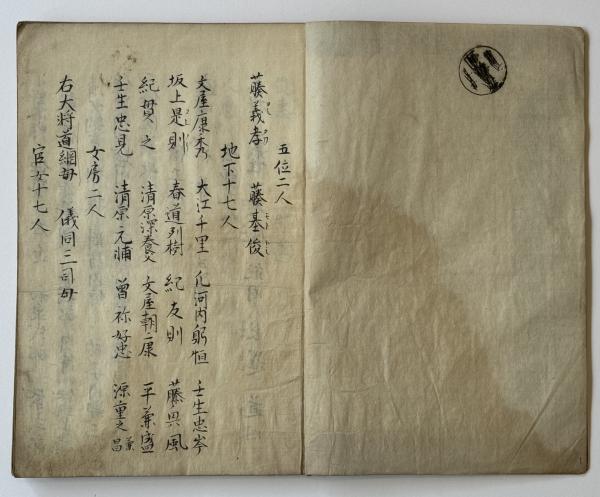 五位二人
藤義孝 藤基俊
地下十七人
文屋康秀 大江千里 凡河内躬恒 壬生忠岑
坂上是則 春道列樹 紀友則 藤興風
紀貫之 清原深養父 文屋朝康 平兼盛
壬生忠見 清原元輔 曾祢好忠 源重之 兼昌
女房二人
右大将道綱母 儀同三司母
官女十七人